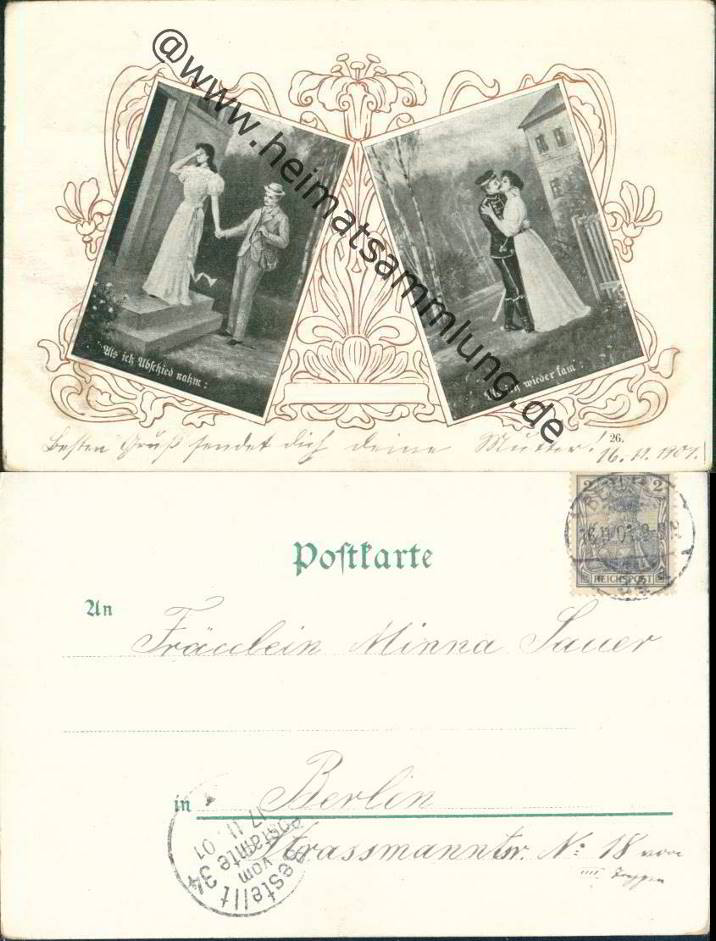 @www.heimatsammlung.de
Als ich Abschied nahm:
wieder kam
Besten Gruß sendet dich deine Mutter!
26.
16. 11. 1901.
Postkarte
2 2
BERLIN
REICHSPOST
An
Fräulein Minna Sauer
in Berlin
Strassmannstr. No: 18 vorn
IIII Treppen
Bestellt
vom
Postamte 34
17. 11. 01